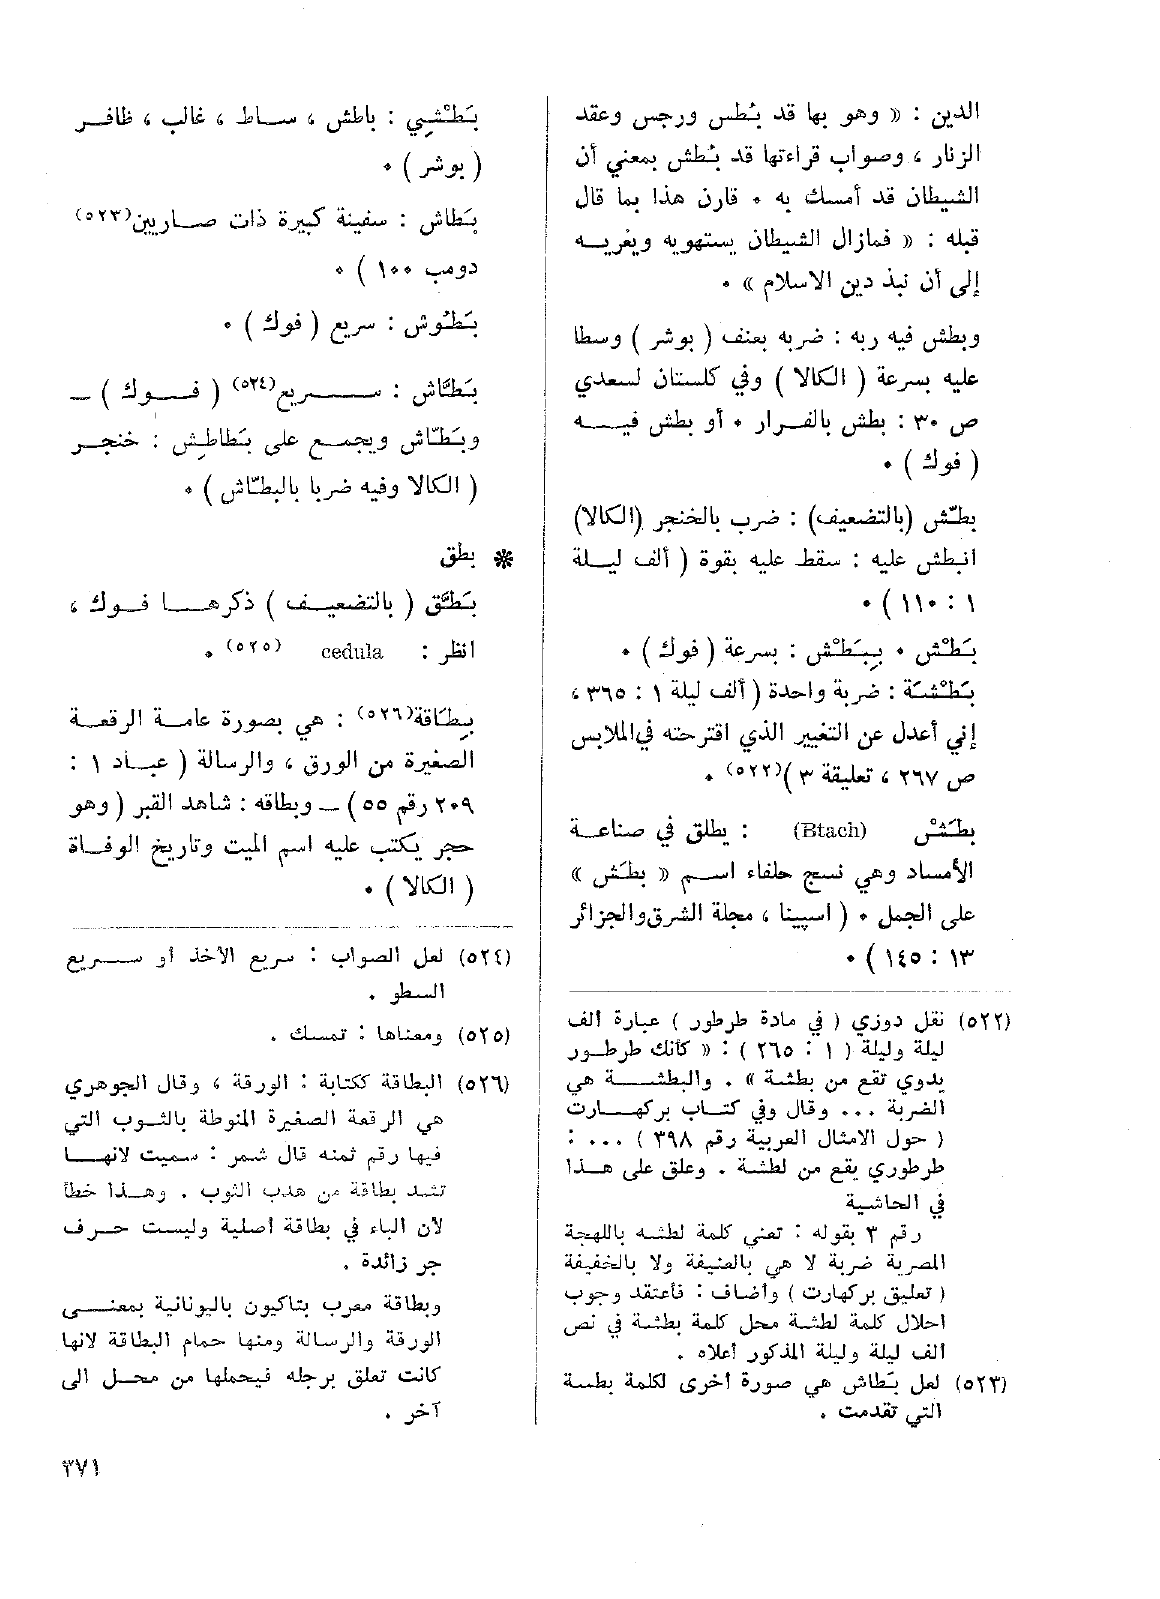 الدين : « وهو بها قد بُطس ورجس وعقد
الزنار ، وصواب قراءتها قد بُطش بمعنى أن
الشيطان قد أمسك به ٠ قارن هذا بما قال
قبله : « فمازال الشيطان يستهويه ويغريـــه
إلى أن نبذ دين الاسلام » ٠
وبطش فيه ربه : ضربه بعنف ( بوشر ) وسطا
عليه بسرعة ( الكالا ) وفي كلستان لسعدي
ص ٣٠ : بطش بالفــرار ٠ أو بطش فيـــه
( فوك ) ٠
بطّش (بالتضعيف) : ضرب بالخنجر (الكالا)
انبطش عليه : سقط عليه بقوة ( ألف ليــلة
١ : ١١٠ ) ٠
بَطْش ٠ بِبَطْش : بسرعة ( فوك ) ٠
بَطْشَة : ضربة واحدة ( ألف ليلة ١ : ٣٦٥ ،
إني أعدل عن التغيير الذي اقترحته في الملابس
ص ٢٦٧ ، تعليقة ٣ )(٥٢٢) ٠
بطَش (Btach) : يطلق في صناعـة
الأمساد وهي نسج حلفاء اســم « بطَش »
على الجمل ٠ ( اسپينا ، مجلة الشرق والجزائر
١٣ : ١٤٥ ) ٠
(٥٢٢) نقل دوزي ( في مادة طرطور ) عبارة الف
ليلة وليلة ( ١ : ٢٦٥ ) : « كأنك طرطــور
يدوي تقع من بطشة » . والبطشــــة هي
الضربة ... وقال وفي كتــاب بركهــــارت
( حول الامثال العربية رقم ٣٩٨ ) ... :
طرطوري يقع من لطشة . وعلق على هــذا
في الحاشية
رقم ٣ بقوله : تعني كلمة لطشه باللهجة
المصرية ضربة لا هي بالعنيفة ولا بالخفيفة
( تعليق بركهارت ) وأضاف : فأعتقد وجوب
احلال كلمة لطشة محل كلمة بطشة في نص
الف ليلة وليلة المذكور أعلاه .
(٥٢٣) لعل بَطاش هي صورة أخرى لكلمة بطسة
التي تقدمت .
بَطْشِي : باطش ، ســاط ، غالب ، ظافــر
( بوشر ) ٠
بَطاش : سفينة كبيرة ذات صــاريين(٥٢٣)
دومب ١٠٠ ) ٠
بَطُوش : سريع ( فوك ) ٠
بَطّاش : ســـريع(٥٢٤) ( فــوك ) ــ
وبَطّاش ويجمــع على بَطاطِش : خنجــر
( الكالا وفيه ضربا بالبطّاش ) ٠
❋ بطق
بَطَّق ( بالتضعيــف ) ذكرهـــا فــوك ،
انظر : cedula (٥٢٥) ٠
بِطَاقة(٥٢٦) : هي بصورة عامــة الرقعــة
الصغيرة من الورق ، والرسالة ( عبــاد ١ :
٢٠٩ رقم ٥٥ ) ــ وبطاقه : شاهد القبر ( وهو
حجر يكتب عليه اسم الميت وتاريخ الوفــاة
( الكالا ) ٠
(٥٢٤) لعل الصواب : سريع الأخذ أو ســـريع
السطو .
(٥٢٥) ومعناها : تمسك .
(٥٢٦) البطاقة ككتابة : الورقة ، وقال الجوهري
هي الرقعة الصغيرة المنوطة بالثــوب التي
فيها رقم ثمنه قال شمر : سميت لانهــا
تشد بطاقة من هدب الثوب . وهــذا خطأ
لأن الباء في بطاقة أصلية وليست حــرف
جر زائدة .
وبطاقة معرب بتاكيون باليونانية بمعنــى
الورقة والرسالة ومنها حمام البطاقة لانها
كانت تعلق برجله فيحملها من محــل الى
آخر .
٣٧١